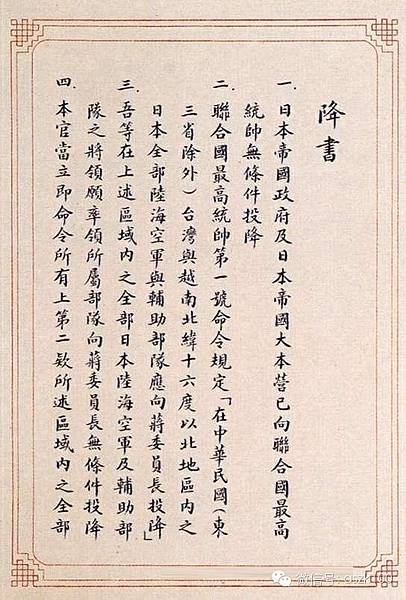 降書
一．日本帝國政府及日本帝國大本營已向聯合國最高
統帥無條件投降
二．聯合國最高統帥第一號命令規定「在中華民國（東
三省除外）台灣與越南北緯十六度以北地區內之
日本全部陸海空軍與輔助部隊應向蔣委員長投降」
三．吾等在上述區域內之全部日本陸海空軍及輔助部
隊之將領願率領所屬部隊向蔣委員長無條件投降
四．本官當立即命令所有上第二欵所述區域內之全部
微信号: